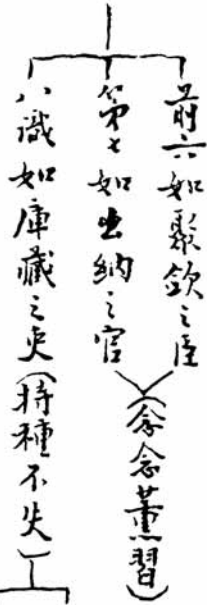 前六如聚斂之臣
第七如出納之官
(念念薰習)
八識如庫藏之吏(持種不失)